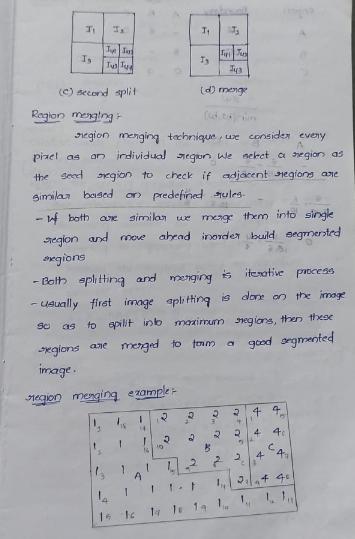 I1 I2
I3 I41 I42
I43 I44
I1 I2
I3 I41 I42
I43
(c) second split (d) merge
Region merging :-
region merging technique, we consider every
pixel as an individual region. We select a region as
the seed region to check if adjacent regions are
similar based on predefined rules.
- If both are similar we merge them into single
region and move ahead inorder build segmented
regions
- Both splitting and merging is iterative process
- usually first image splitting is done on the image
so as to spilit into maximum regions, then these
regions are merged to form a good segmented
image.
region merging example :-
1 1 1 2 2 2 2 4 4
1 1 1 2 2 2 2 4 4
B C
1 1 1 1 2 2 2 4 4
A
1 1 1 1 1 1 2 4 4
1 1 1 1 1 1 1 1 1